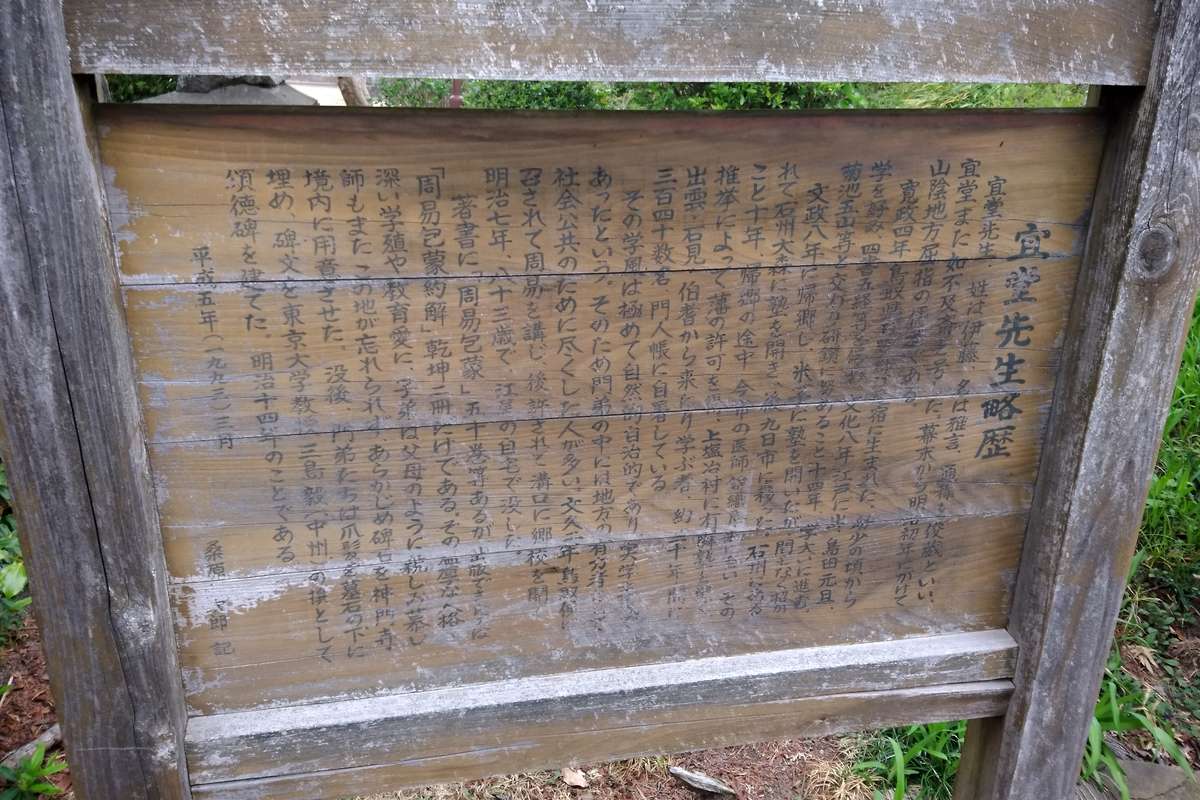 宜堂先生略歴
宜堂先生 姓は伊藤、名は 言、通称を俊蔵といい、
宜堂また如不及斎と号した。幕末から明治初年にかけて
山陰地方屈指の儒 である。
寛政四年鳥取県 宿に生まれた。幼少の頃から
学を好み、四書五経等を 文化八年江戸に出、島田元旦、
菊池五山等と交わり研鑽に努めること十四年 大いに進む。
文政八年に帰郷し、米子に塾を開いたが、間もな 招か
れて石州大森に塾を開き、後九日市に移った。石州に於る
こと十年 帰郷の途中 今市の医師 その
推挙によって藩の許可を得、上塩冶村に有隣塾を
出雲、石見、伯耆から来たり学ぶ者、約二十年間に
三百四十数名 門人帳に自署している。
その学風は極めて自然的自治的であり、実学
あったという。そのため門弟の中には地方の有力者
社会公共のために尽くした人が多い。文久二年鳥取侯に
召されて周易を講じ、後許されて溝口に郷校を開
明治七年、八十三歳で、江尾の自宅で没した
著書に「周易包蒙」五十巻等あるが、出版
「周易包蒙約解」乾坤二冊だけである。その 人格
深い学殖や教育愛に、子弟は父母のように親しみ慕い
師もまたこの地が忘れられず、あらかじめ碑石を神門寺
境内に用意させた。没後、門弟たちは爪髪を墓石の下に
埋め、碑文を東京大学教授三島毅(中州)の撰として
頌徳碑を建てた。明治十四年のことである
平成五年(一九九三)三月
桑原 郎 記